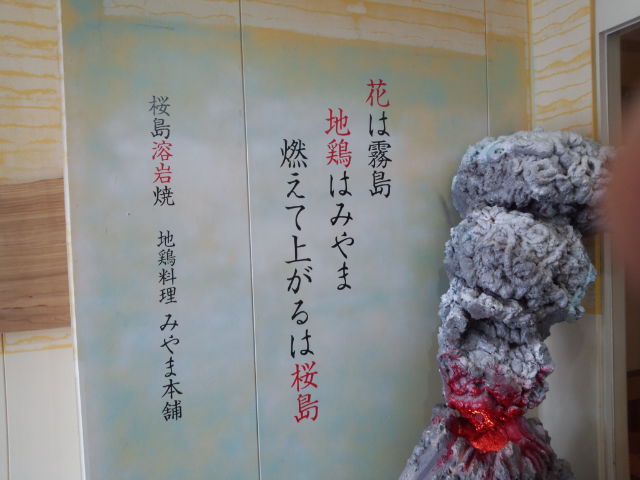 花は霧島
地鶏はみやま
燃えて上がるは桜島
桜島溶岩焼 地鶏料理 みやま本舗